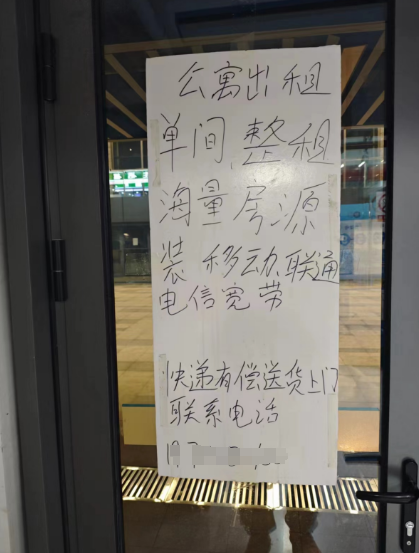 公寓出租
单间整租
海量房源
装移动联通
电信宽带
快递有偿送货上门
联系电话